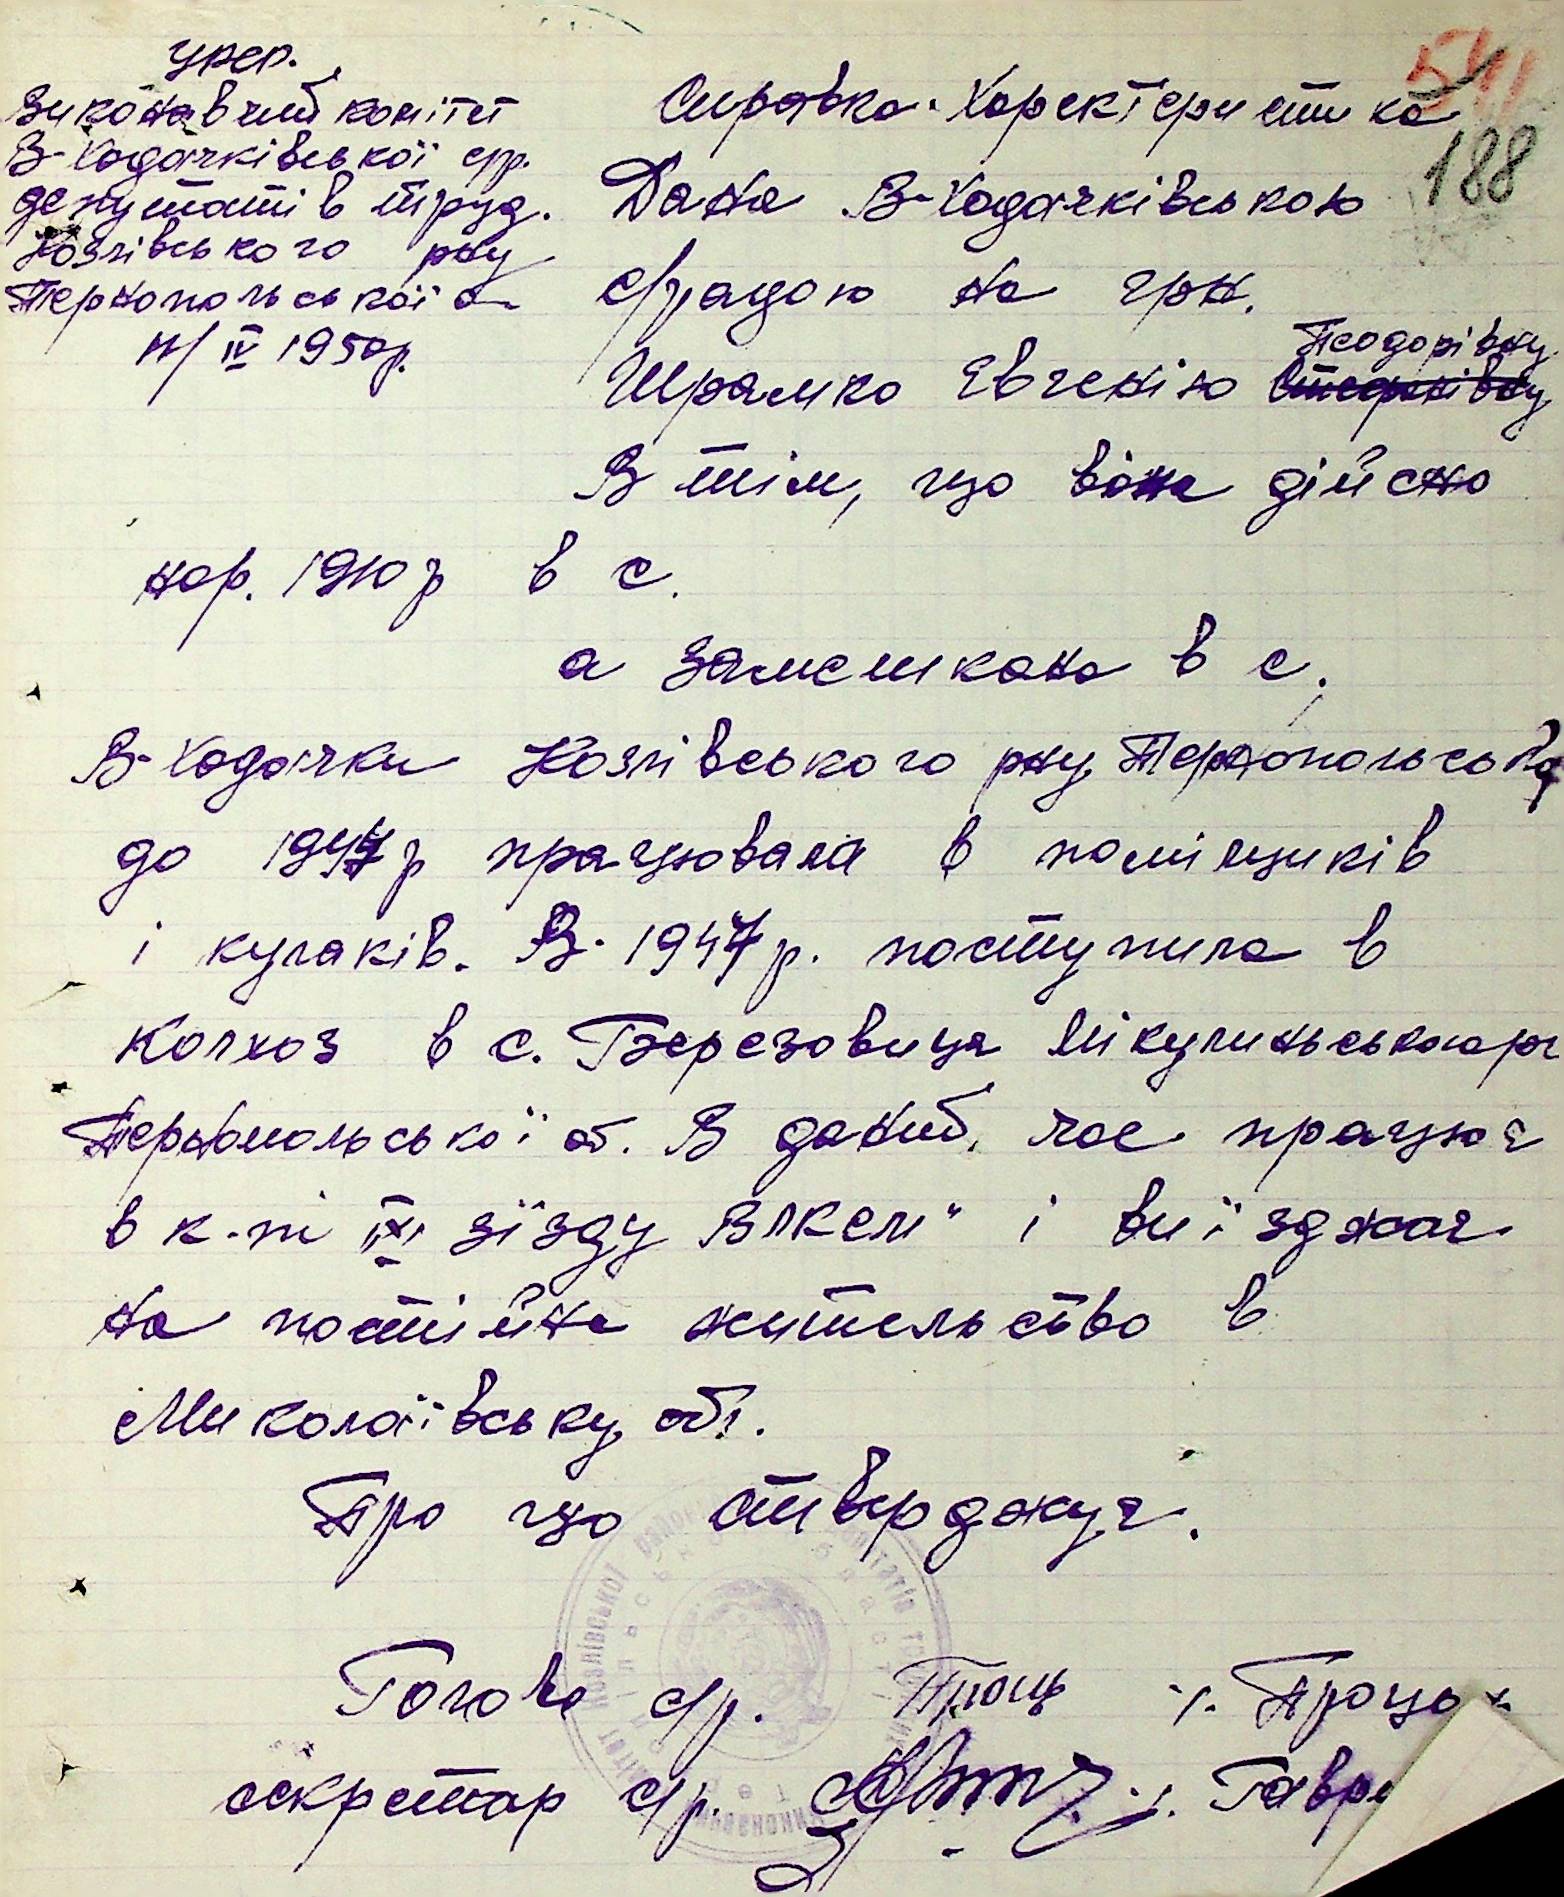 УРСР.
Виконавчий комітет
В-Ходачківської с/р.
депутатів труд.
Козлівського р-ну
Тернопольської о
IV 1950р.
541
188
Справка-Характеристика
Дана В-Ходачківською
с/радою на грн.
Шрамко Євгенію Теодорівну
В тім, що вона дійсно
нар. 1910 р в с.
а замешкана в с.
В-Ходачки Козлівського р-ну Тернопольської
до 1947 р працювала в поміщиків
і кулаків. В. 1947 р. поступила в
колхоз в с. Березовиця Мікулинського р-
Тернопольської об. В даний час працює
в к-пі IX зїзду ВЛКСМ" і виїзджає
на постійне жительство в
Миколаївську обл.
Про що стверджує.
Голова с/р. Проць /-. Проць
секретар с/р. /-. Гавр